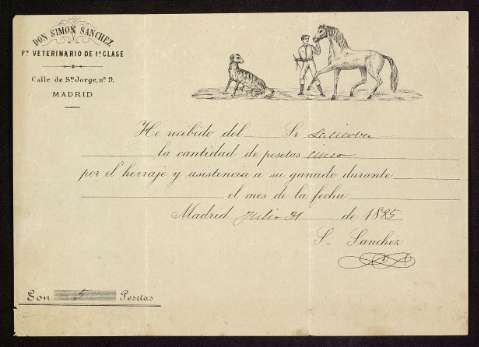 DON SIMON SANCHEZ
Pr. VETERINARIO DE 1ª CLASE
Calle de Sn. Jorge, nº 9.
MADRID
He recibido del Sr
la cantidad de pesetas cinco
por el herraje y asistencia a su ganado durante
el mes de la fecha
Madrid Julio 31 de 1885
S. Sanchez
Son 5 Pesetas